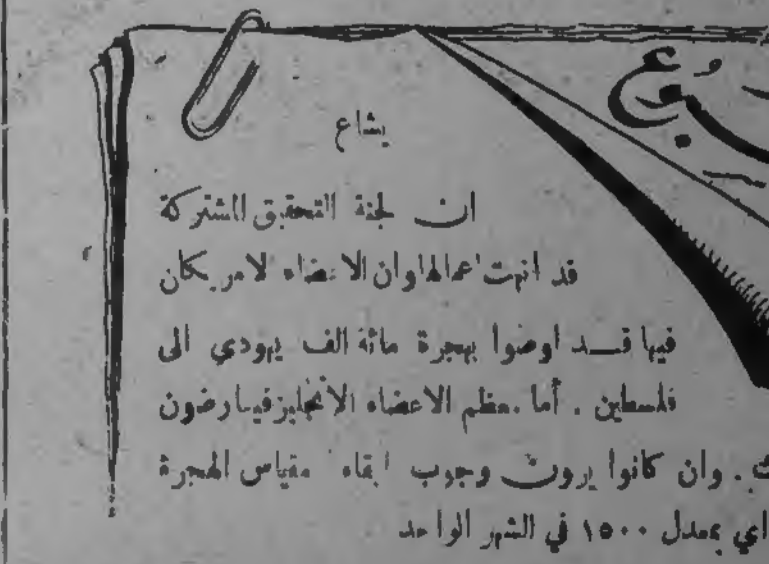 يشاع
ان لجنة التحقيق المشتركة
قد انهت اعمالها وان الاعضاء الامريكان
فيها قــد اوصوا بهجرة مائة الف يهودي الى
فلسطين . أما معظم الاعضاء الانجليز فيعارضون
. وان كانوا يرون وجوب ابقاء مقياس الهجرة
اي بمعدل ١٥٠٠ في الشهر الواحد